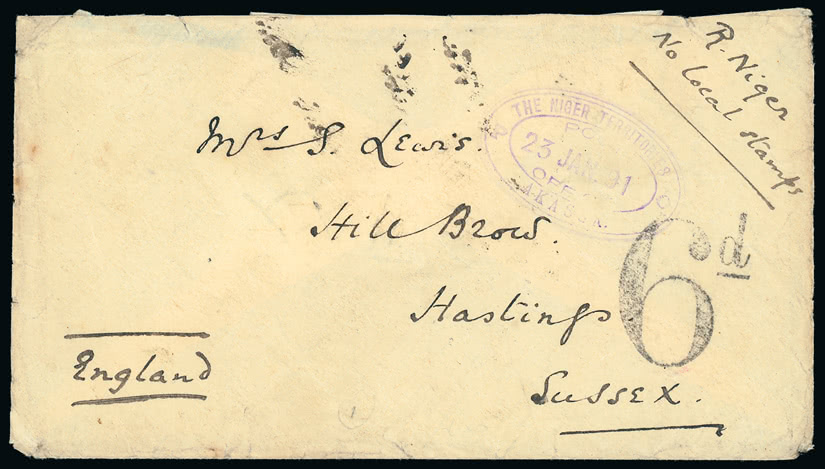 R. Niger
No local stamps
THE NIGER TERRITORIES
PO
23 JAN 91
OFFICE
AKASSA
Mrs S. Lewis.
Hill Brow.
Hastings.
Sussex.
England
6d